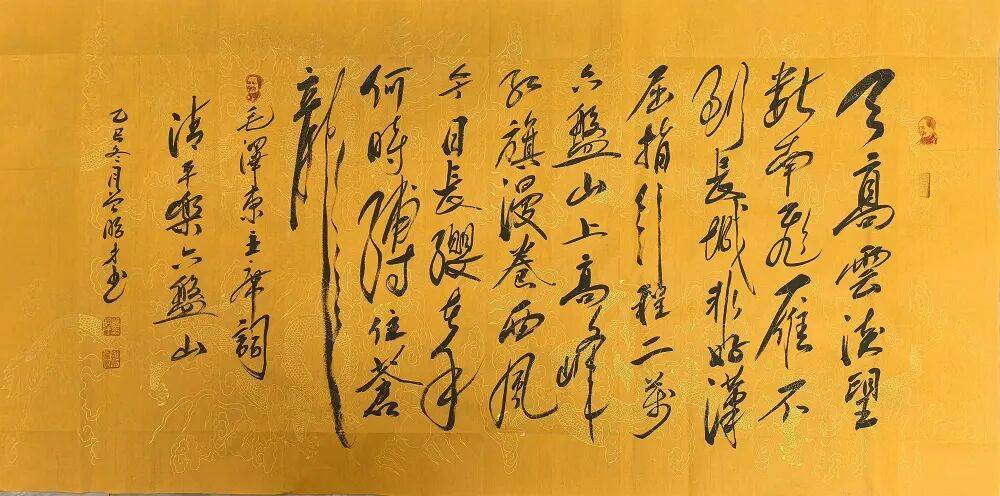 天高雲淡望
断南飛雁不
到長城非好漢
屈指行程二萬
六盤山上高峰
紅旗漫卷西風
今日長纓在手
何時縛住蒼
龍
毛澤東主席詞
清平樂六盤山
乙巳冬月才书